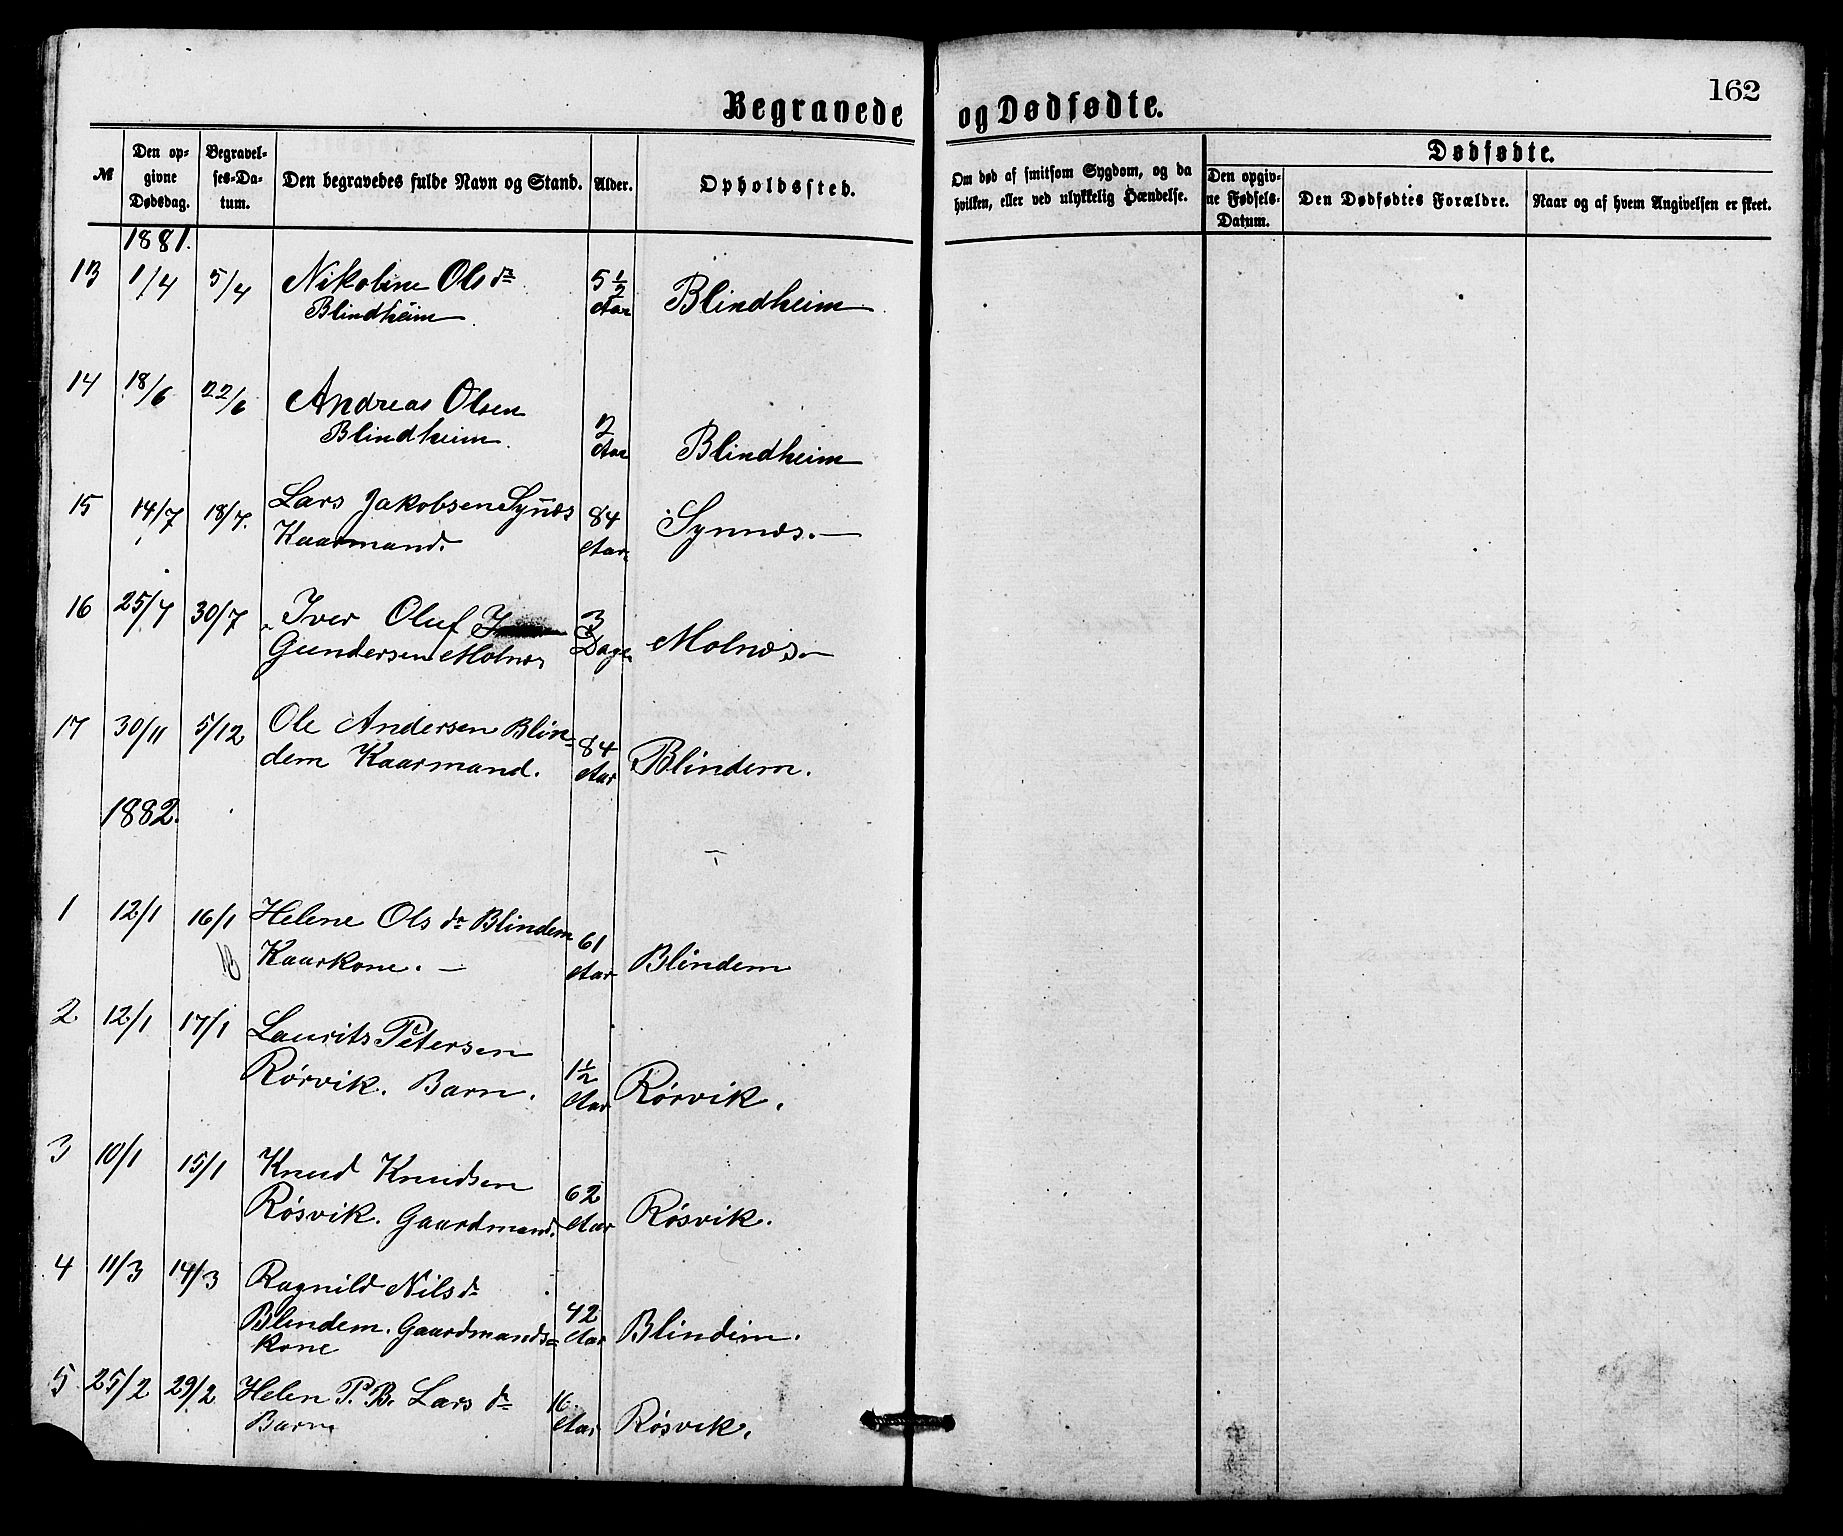 162
Begravede og Dødfødte.
№
Den opgivne Dødsdag.
Begravelses-Datum.
Den begravedes fulde Navn og Stand.
Alder.
Opholdssted.
Om død af smitsom Sygdom, og da hvilken, eller ved ulykkelig Hændelse.
Dødfødte.
Den opgivne Fødsels-Datum.
Den Dødfødtes Forældre.
Naar og af hvem Angivelsen er skeet.
1881.
13 1/4 5/4 Nikoline Olsdr 5 1/2 Aar Blindheim
Blindheim
14 18/6 22/6 Andreas Olsen 2 Aar Blindheim
Blindheim.
15 14/7 18/7. Lars Jakobsen Synæs 84 Aar Synnæs.
Kaarmand.
16 25/7 30/7 Iver Oluf 3 Dage Molnæs
Gundersen Molnæs
17 30/11 5/12 Ole Andersen Blin= 84 Aar Blindem.
dem Kaarmand.
1882.
1 12/1 16/1 Helene Olsdr Blindem 61 Aar Blindem
Kaarkone.
2 12/1 17/1 Laurits Petersen 1 1/2 Aar Rørvik.
Rørvik. Barn.
3 10/1 15/1 Knud Knudsen 62 Aar Røsvik.
Røsvik. Gaardmand.
4 11/3 14/3 Ragnild Nilsdr 42 Aar Blindim.
Blindem. Gaardmands=
kone
5 25/2 29/2 Helen P. B. Larsdr 16 Aar Røsvik.
Barn.